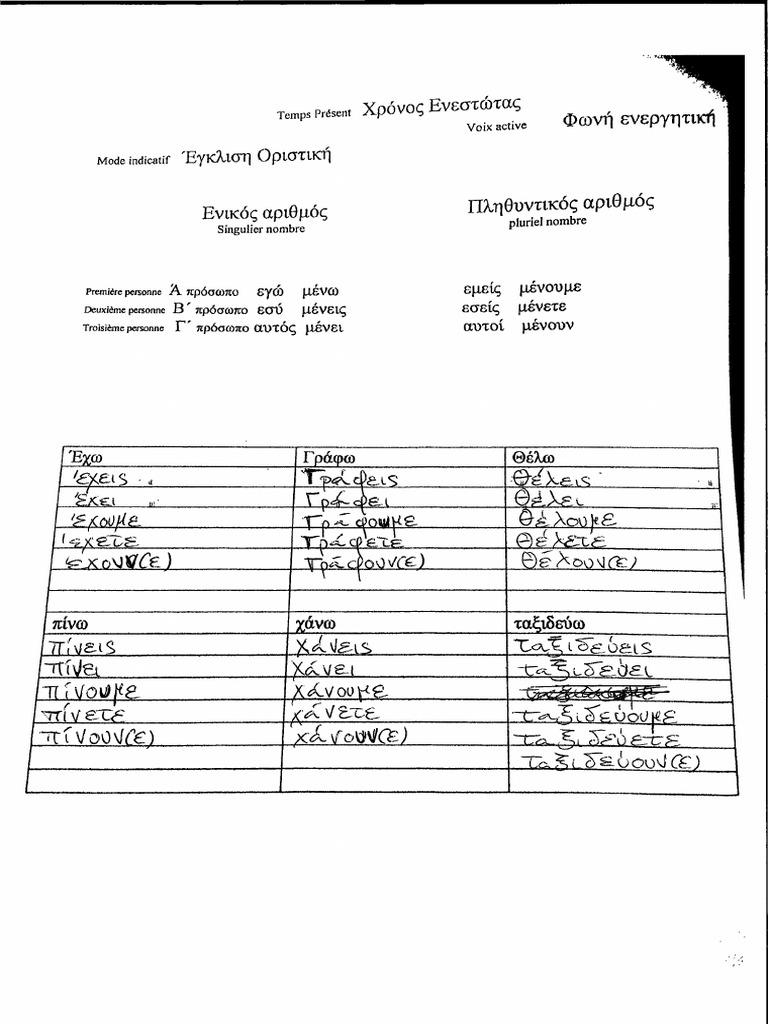 Temps Présent Χρόνος Ενεστώτας
Voix active Φωνή ενεργητική
Mode indicatif Έγκλιση Οριστική
Ενικός αριθμός Πληθυντικός αριθμός
Singulier nombre pluriel nombre
Première personne Ά πρόσωπο εγώ μένω εμείς μένουμε
Deuxième personne Β΄ πρόσωπο εσύ μένεις εσείς μένετε
Troisième personne Γ΄ πρόσωπο αυτός μένει αυτοί μένουν
Έχω Γράφω Θέλω
έχεις Γράφεις Θέλεις
έχει Γράφει Θέλει
έχουμε Γράφουμε Θέλουμε
έχετε Γράφετε Θέλετε
έχουν(ε) Γράφουν(ε) Θέλουν(ε)
πίνω χάνω ταξιδεύω
πίνεις χάνεις ταξιδεύεις
πίνει χάνει ταξιδεύει
πίνουμε χάνουμε
πίνετε χάνετε ταξιδεύουμε
πίνουν(ε) χάνουν(ε) ταξιδεύετε
ταξιδεύουν(ε)